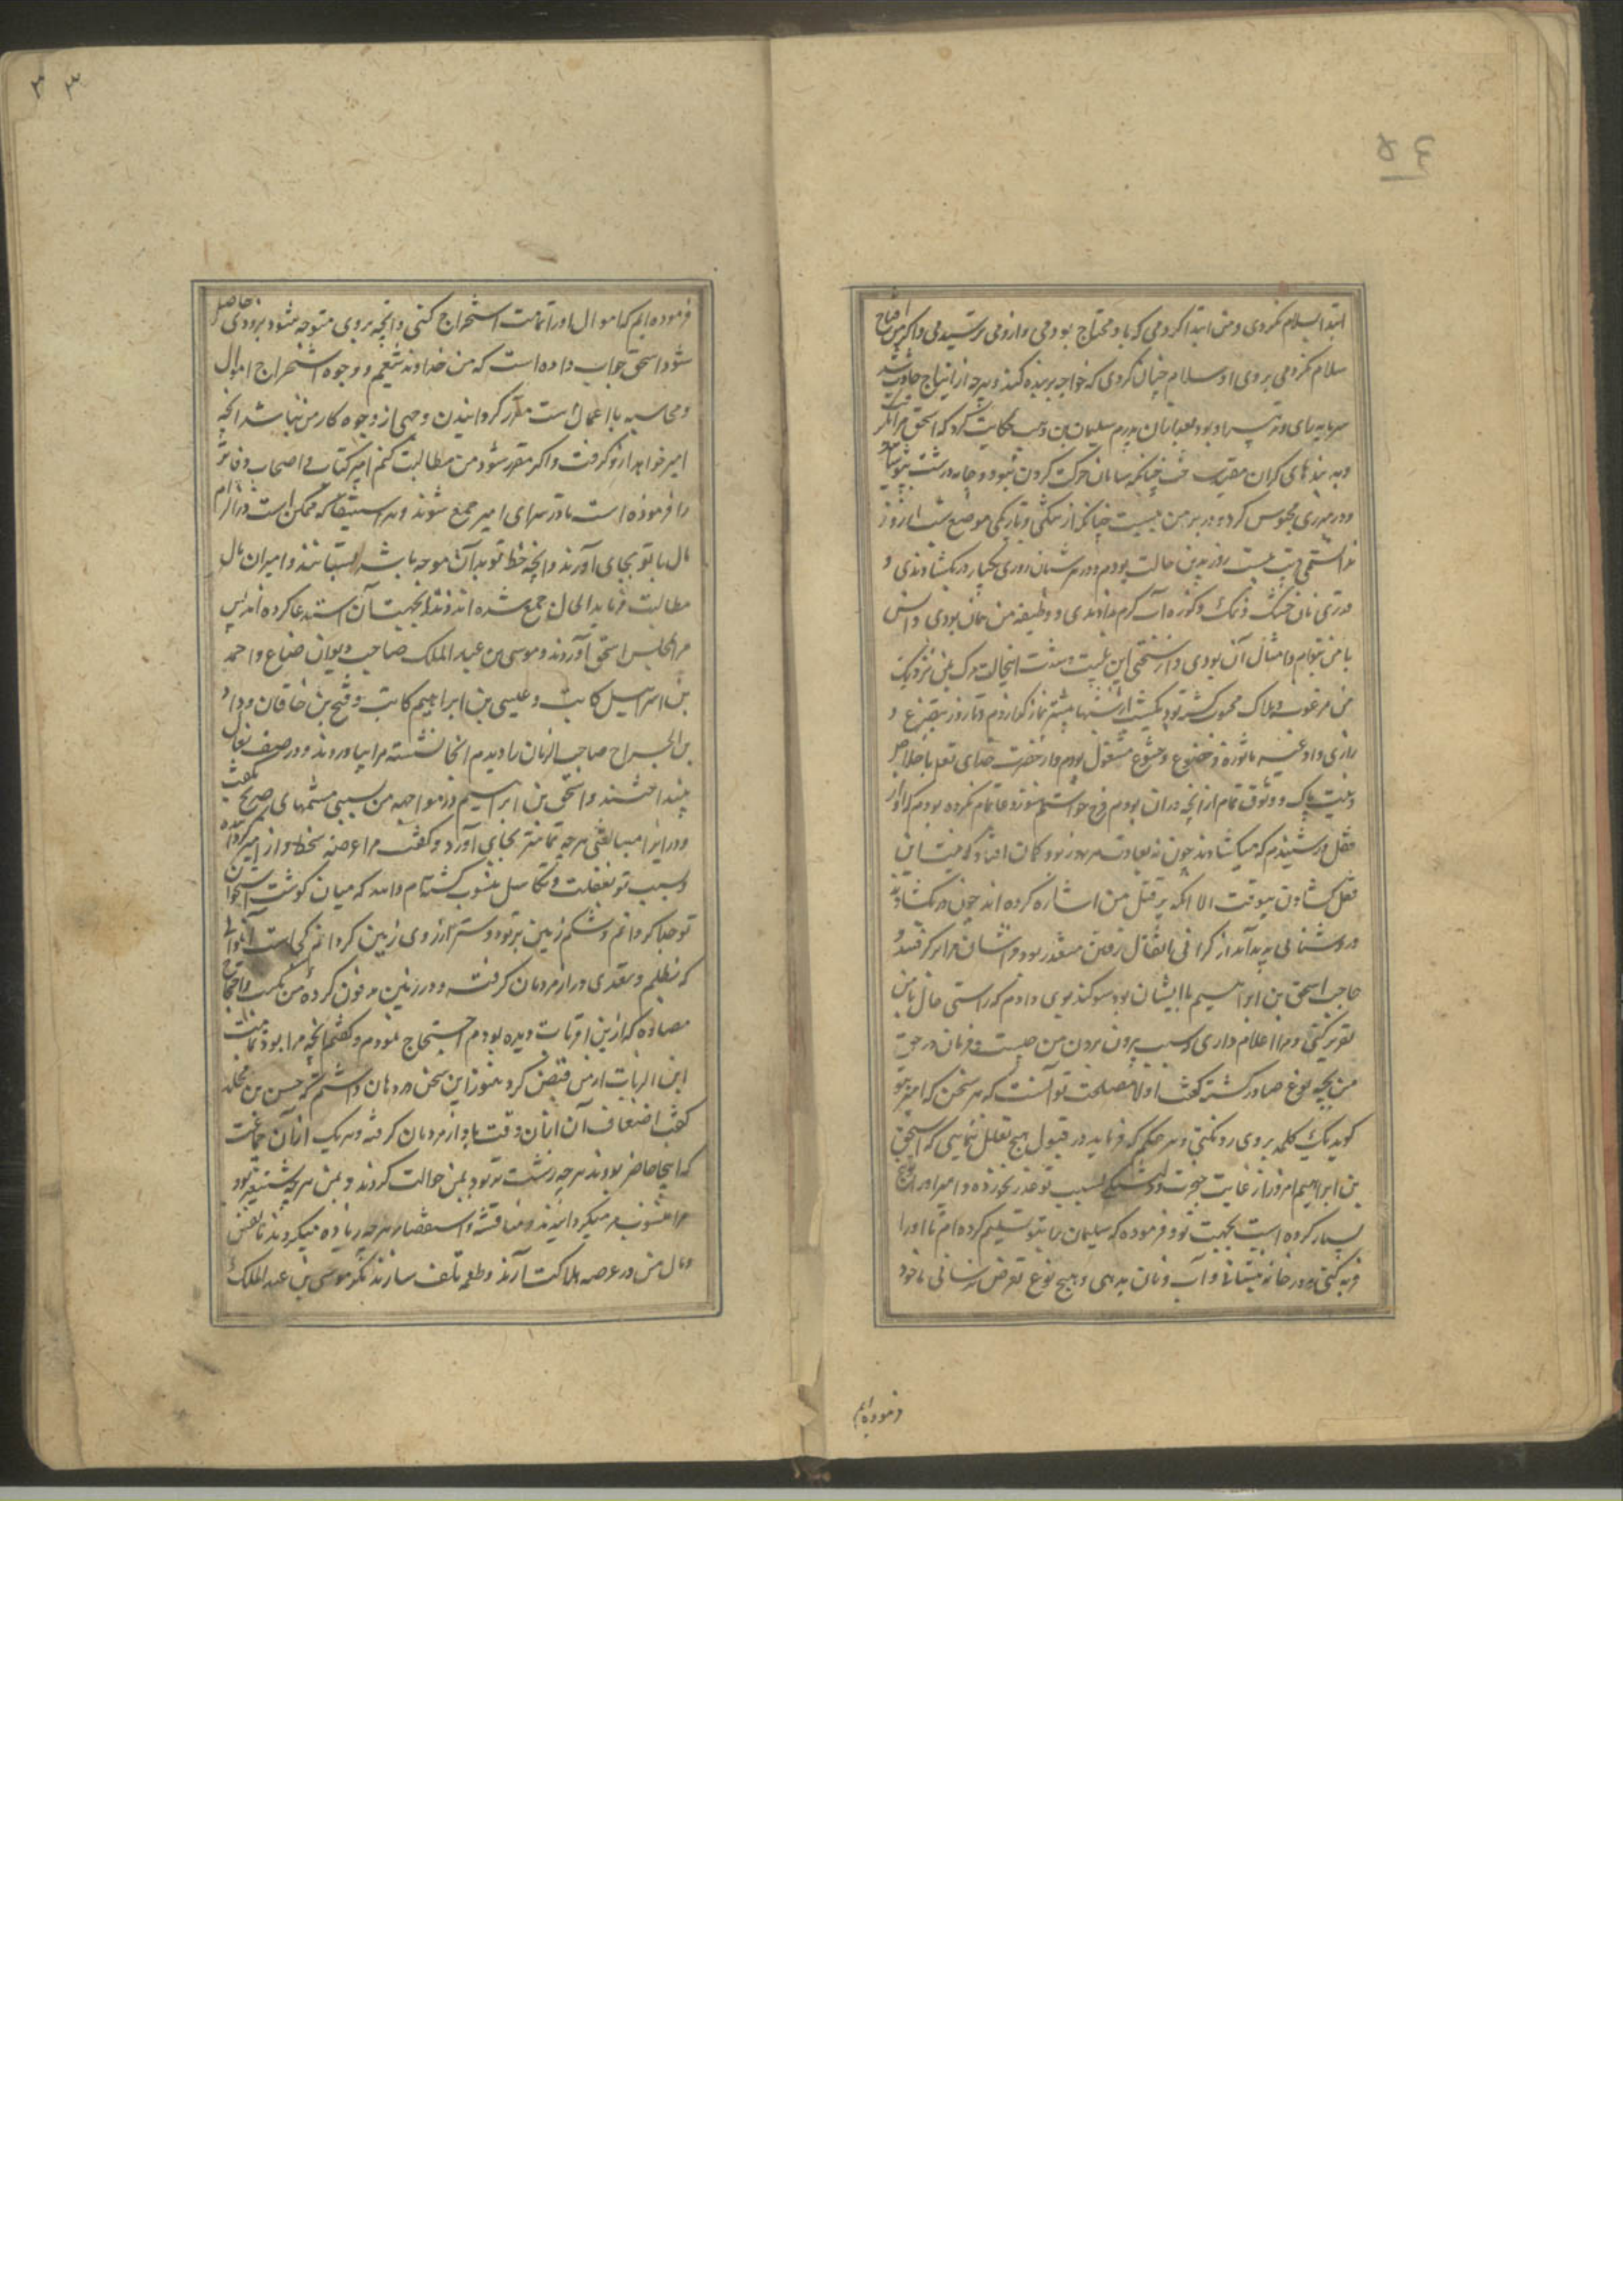 ابتدا بسلام نکردی و من ابتدا کردمی که باو محتاج بودمی و ازو می ترسیدمی و اگر من افتتاح
سلام نکردمی بروی او سلام چنان کردی که خواجه بر بنده کند و هر چه از
بود بعد از آن پدرم سلیمان بن وهب حکایت کرد که اسحق مرا
و به بندهای گران مقید ساخت چنانکه سامان حرکت کردن نبود و جامه درشت
و در حجره‌ی محبوس کرد و در بر من ببست چنانکه از تنگی و تاریکی موضع شب از روز
ندانستمی بیست روز بدین حالت بودم و در شبان روزی یکبار در بگشادندی و
قدری نان خشک و نمک و کوزه آب گرم دادندی و وظیفه من همان بودی و انس
با من و امثال آن بودی و از سختی این بلیت و شدت این حالت مرگ بمن نزدیک
من مرغوب و هلاک محبوب گشته بود یکشب از شبها بیشتر نماز گزاردم و تا روز بتضرع و
زاری و ادعیه ماثوره و خضوع و خشوع مشغول بودم و از حضرت خدای تعالی باخلاص
و نیت پاک و وثوق تمام از آنچه در آن بودم فرج خواستم هنوز دعا تمام نکرده بودم که آواز
قفل در شنیدم که میگشادند چون نه بعادت هر روز بود گمان افتاد که
قفل گشادن بیوقت الا آنکه بر قتل من اشاره کرده اند چون در بگشادند
و روشنائی پدید آمد از گرانی با ثقال رفتن متعذر بود و ایشان مرا بر گرفتند و
حاجب اسحق بن ابراهیم با ایشان بود سوگند بوی دادم که راستی حال با من
تقریر کنی و مرا اعلام داری که سبب بیرون بردن من چیست و فرمان در حق
من بچه نوع صادر گشته گفت اولا مصلحت تو آنست که هر سخن که امیر بتو
گوید یک کلمه بروی رد نکنی و هر حکم که فرماید در قبول هیچ تعلل ننمایی که اسحق
بن ابراهیم امروز از غایت ضجرت و دلتنگی بسبب تو غذا نخورده و امیر او را
بسیار کرده است بجهت تو و فرموده که سلیمان را بتو تسلیم کرده ام تا او را
فربه کنی و در خانه بنشانی و آب و نان بدهی و هیچ نوع تعرض نرسانی ما خود
فرموده ایم
فرموده ایم که اموال او را تمامت استخراج کنی و آنچه بروی متوجه شود بزودی حاصل
شود اسحق جواب داده است که من خداوند تیغم و وجوه استخراج اموال
و محاسبه با اعمال است مقرر گردانیدن وجهی از وجوه کار من نباشد آنچه
امیر خواهد ازو گرفت و اگر مقرر شود من مطالبت کنم امیر کتاب و اصحاب دفاتر
را فرموده است تا در سرای امیر جمع شوند و هر استیفا که ممکن است در الزام
مال با تو بجای آورند و آنچه خط تو بدان موجه باشد بستانند و امیر از آن مال
مطالبت فرماید الحال جمع شده اند و ترا بجهت آن استدعا کرده اند پس
مرا بمجلس اسحق آوردند و موسی بن عبد الملک صاحب دیوان ضیاع و احمد
بن اسرائیل کاتب و عیسی بن ابراهیم کاتب و فتح بن خاقان و داود
بن الجراح صاحب الزمان را دیدم آنجا نشسته مرا بیاوردند و در صف نعال
بینداختند و اسحق بن ابراهیم در مواجهه من بسبی شتمهای صریح بگفت
و در ایذا مبالغتی هر چه تمامتر بجای آورد و گفت مرا عرضه سخط و آزار امیر کرده
و بسبب تو بغفلت و تکاسل منسوب گشته‌ام والله که میان گوشت و استخوان
تو جدا گردانم و شکم زمین بر تو دوستر از روی زمین گردانم کجاست آن اموالی
که بظلم و تعدی و راز مردمان گرفته و در زمین مدفون کرده من بنکبت
مصادره که از ابن الزیات دیده بودم احتجاج نمودم و گفتم آنچه مرا بود تمامت
ابن الزیات از من قبض کرد هنوز این سخن در دهان داشتم که حسن بن مخلد
گفت اضعاف آن از آن وقت باز از مردمان گرفته و هر یک از آن جماعت
که اینجا حاضر بودند هر چه زشت تر بود بمن حوالت کردند و بمن هر چه شنیع تر بود
مرا منسوب میگردانیدند و مناقشه و استقصا هر چه زیاده میکردند تا نفس
و مال من در عرصه هلاکت آرند و طعمه تلف سازند مگر موسی بن عبد الملک